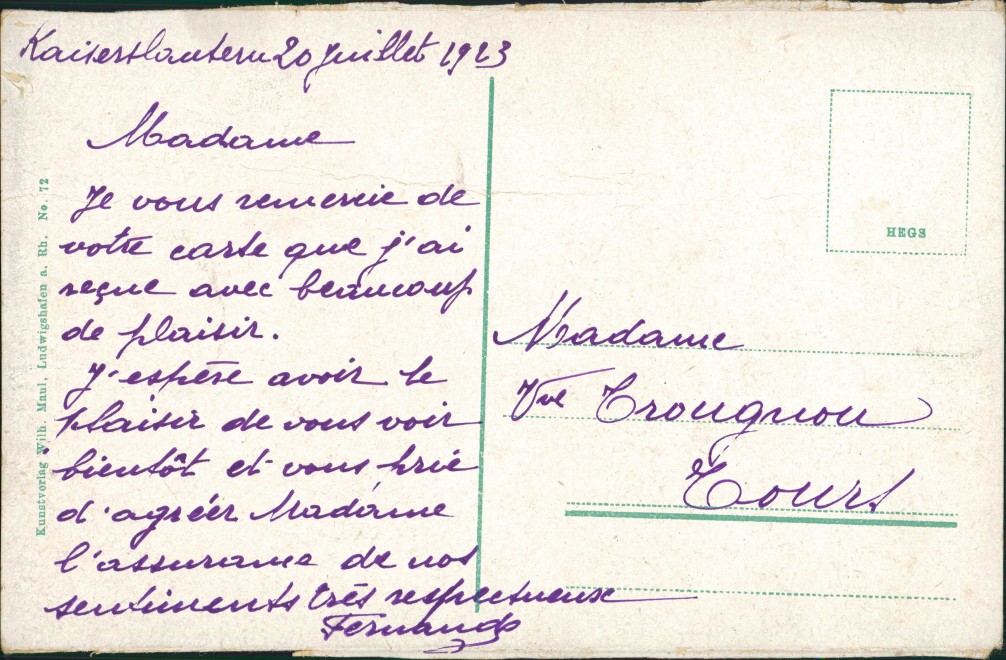 Kaiserslautern 20 Juillet 1923
Madame
Je vous remercie de
votre carte que j'ai
reçue avec beaucoup
de plaisir.
J'espère avoir le
plaisir de vous voir
bientôt et vous prie
d'agréer Madame
l'assurance de nos
sentiments très respectueux
Fernand
Madame
Vve Trougnou
Tours
HEGS
Kunstverlag Wilh. Maul, Ludwigshafen a. Rh. No. 72